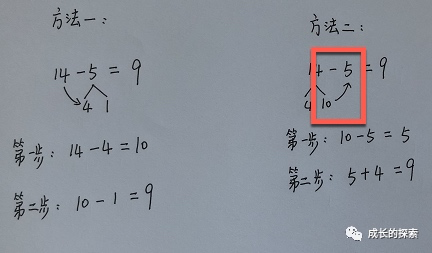 方法一：
14 - 5 = 9
4 1
第一步：14 - 4 = 10
第二步：10 - 1 = 9
方法二：
14 - 5 = 9
4 10
第一步：10 - 5 = 5
第二步：5 + 4 = 9
成长的探索